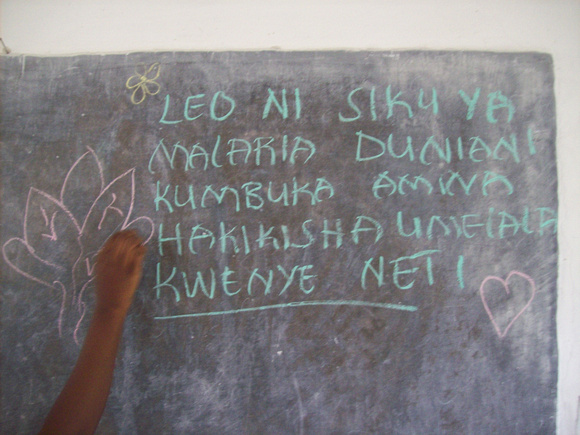 LEO NI SIKU YA
MALARIA DUNIANI
KUMBUKA AMINA
HAKIKISHA UMELALA
KWENYE NETI